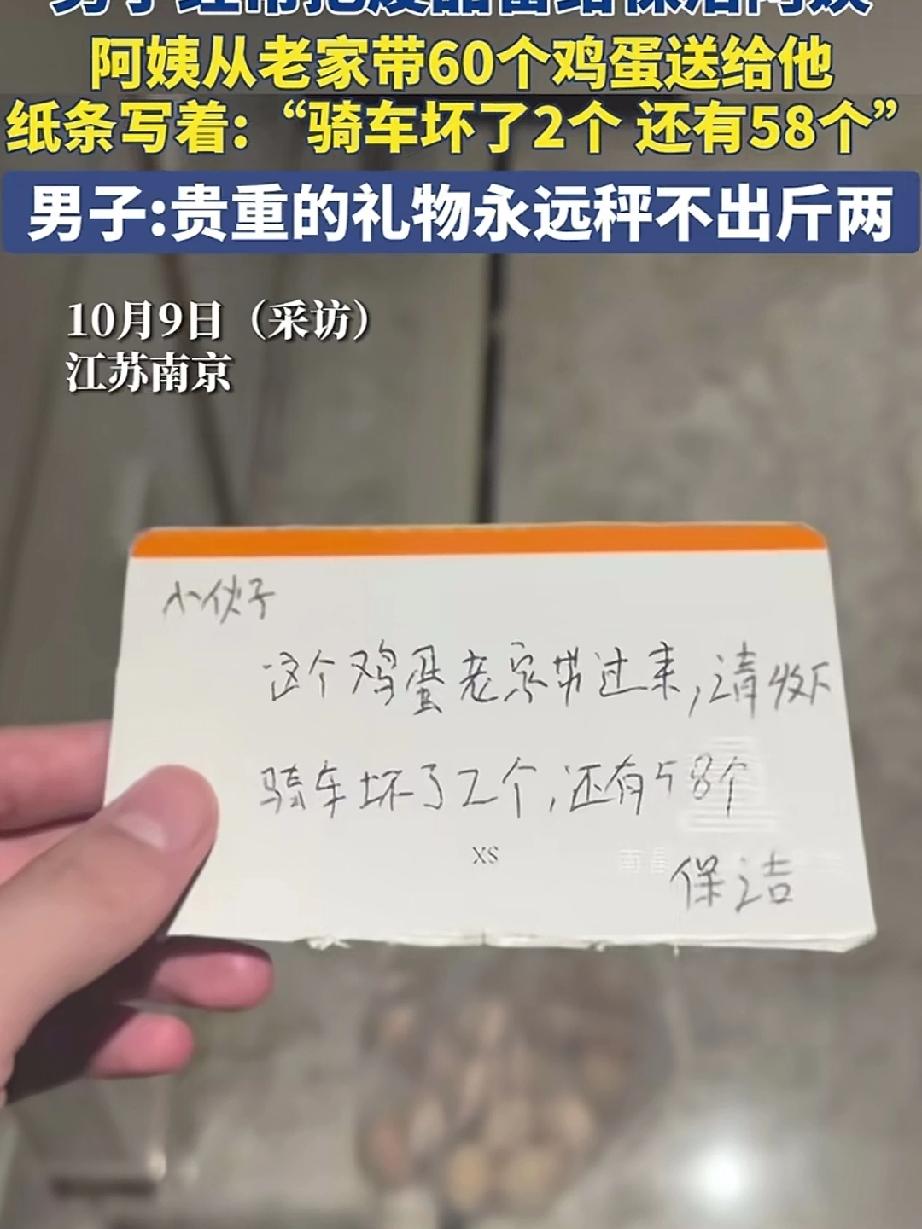 男子经常把废品留给保洁阿姨
阿姨从老家带60个鸡蛋送给他
纸条写着:“骑车坏了2个 还有58个”
男子:贵重的礼物永远秤不出斤两
10月9日（采访）
江苏南京
小伙子
这个鸡蛋老家带过来,请收下
骑车坏了2个,还有58个
XS
保洁